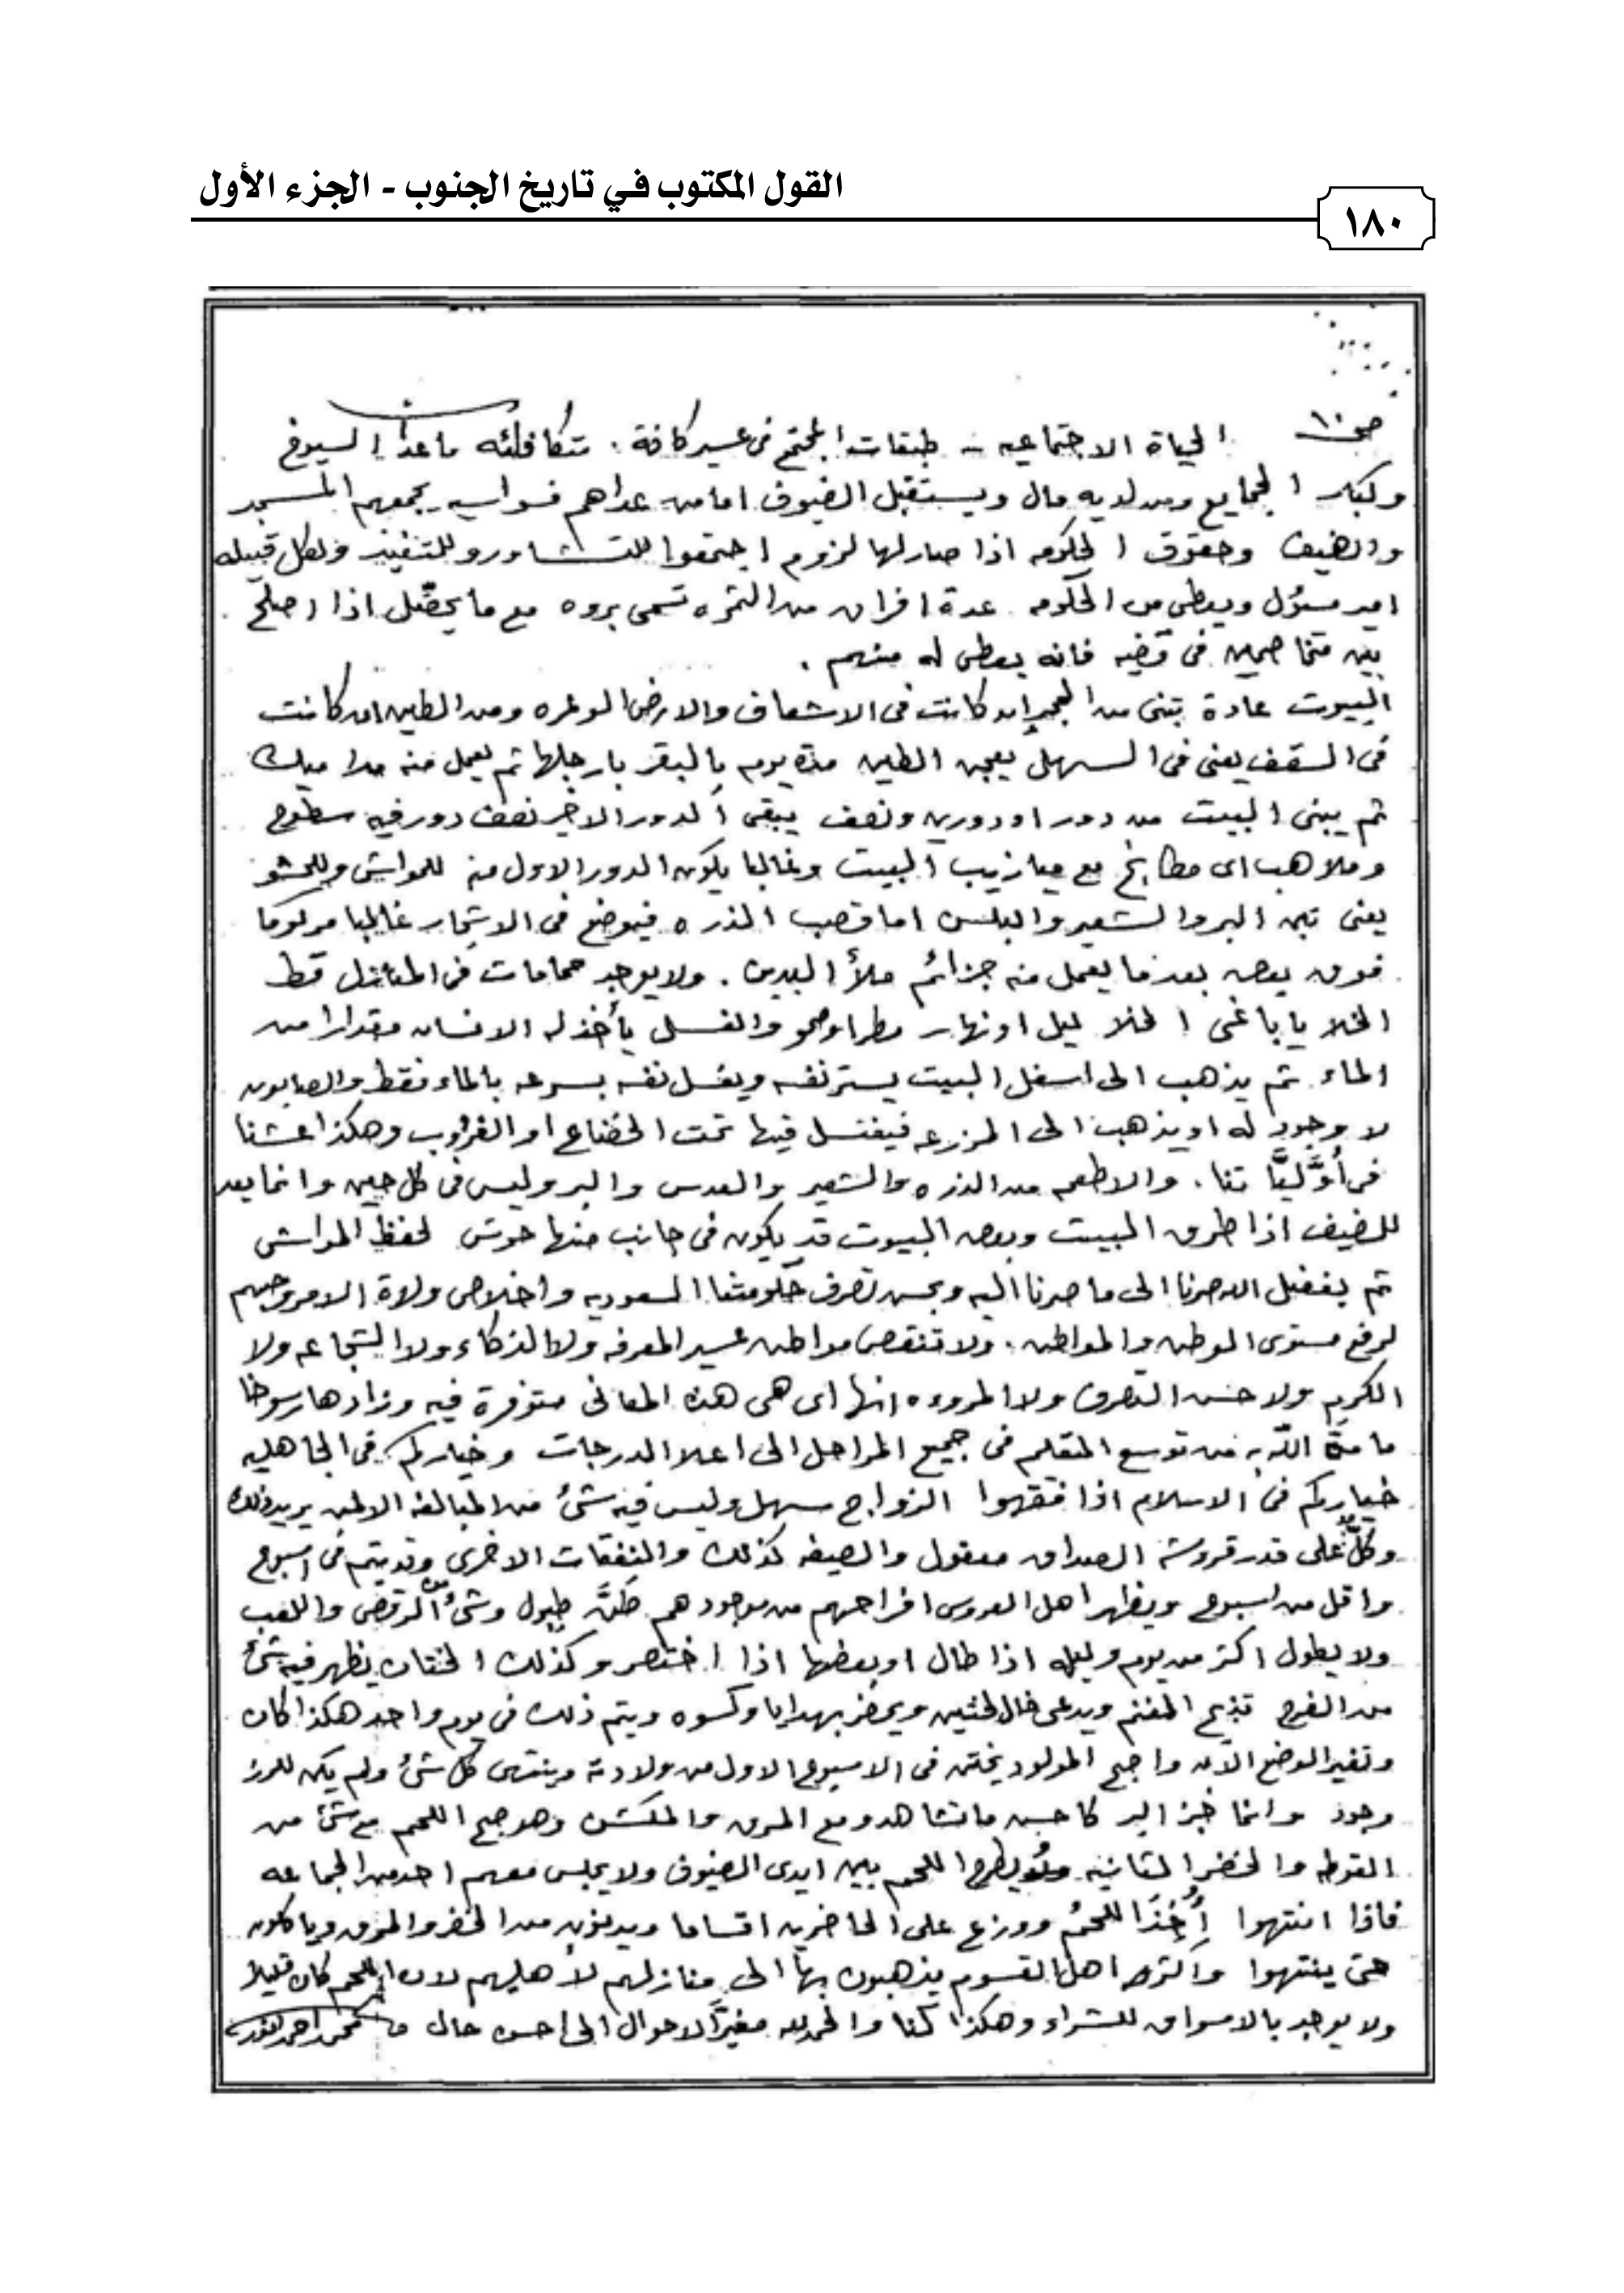 القول المكتوب في تاريخ الجنوب - الجزء الأول
١٨٠
ص١٠ الحياة الاجتماعيه - طبقات المجتمع في عسير كافة . متكافئه ماعدا الشيوخ
وكبار الجمايع ومن لديه مال ويستقبل الضيوف اما من عداهم فسواسيه يجمعهم المسجد
والضيف وحقوق الحكومه اذا صار لها لزوم اجتمعوا للتشاور وللتنفيذ ولكل قبيله
امير مسؤل ويعطى من الحكومه عدة افران من التمره تسمى بروه مع ما يحصّل اذا اصلح
بين متخاصمين في قضيه فانه يعطى له منهم .
البيوت عادة تبنى من الحجر ان كانت في الاشعاف والارض الوعره ومن الطين ان كانت
في السقف يعني في السهل يعجن الطين مدة يوم بالبقر بارجلها ثم يعمل منه مداميك
ثم يبنى البيت من دور او دورين ونصف يبقى الدور الاخير نصف دور فيه سطوح
وملاهب اى مطابخ مع ميازيب البيت وغالبا يكون الدور الاول منه للمواشي وللحشو
يعني تبن البر والشعير والبلسن اما قصب الذره فيوضع في الاشجار غالبا مركوما
فوق بعض بعدما يعمل منه جزائم ملأ اليدين . ولا يوجد حمامات في المنازل قط
الخلا يا باغي الخلا ليل او نهار مطر او صحو والغسل يأخذ له الانسان مقدارا من
الماء ثم يذهب الى اسفل البيت يستر نفسه ويغسل نفسه بسرعه بالماء فقط والصابون
لا وجود له او يذهب الى المزرعه فيغتسل فيها تحت او الغروب وهكذا عشنا
في أوّليّاتنا . والاطعمه من الذره والشعير والعدس والبر وليس في كل حين وانما يعد
للضيف اذا طرق البيت وبعض البيوت قد يكون في جانب منها حوش لحفظ المواشي
ثم بفضل الله صرنا الى ما صرنا اليه وبحسن تصرف حكومتنا السعوديه واخلاص ولاة الامر وحبهم
لرفع مستوى الوطن والمواطن . ولا تنقص مواطن عسير المعرفه ولا الذكاء ولا الشجاعه ولا
الكرم ولا حسن التصرف ولا المروءه انها اى هى هذه المعاني متوفرة فيه وزادها رسوخا
ما منّ الله به من توسع التعليم في جميع المراحل الى اعلا الدرجات وخياركم في الجاهليه
خياركم في الاسلام اذا فقهوا الزواج سهل وليس فيه شئ من المبالغه الا لمن يريد ذلك
وكلٌّ على قدر قروشه الصداق معقول والصيغه كذلك والنفقات الاخرى وقد يتم في اسبوع
واقل من اسبوع ويظهر اهل العروس افراحهم من موجودهم طبول وشئ من الرقص واللعب
ولا يطول اكثر من يوم وليله اذا طال او بعضها اذا اختصر وكذلك الختان يظهر فيه شئ
من الفرح تذبح الغنم ويدعى خال الختين ويحضر بهدايا وكسوه ويتم ذلك في يوم واحد هكذا كان
وتغير الوضع الان واصبح المولود يختن في الاسبوع الاول من ولادته وينتهى كل شئ ولم يكن للرز
وجود وانما خبز البر كاحسن ما تشاهد ومع المرق والمكشن وهو اللحم مع شئ من
القوطه والخضر الثانيه ويطرح اللحم بين ايدى الضيوف ولا يجلس معهم احد من الجماعه
فاذا انتهوا أُخِذَ اللحمُ ووزع على الحاضرين اقساما ويدنون من الخضر والمرق وياكلون
حتى ينتهوا واكثر اهل القسوم يذهبون بها الى منازلهم لأهليهم لان اللحم كان قليلا
ولا يوجد بالاسواق للشراء وهكذا كنا والحمدلله مغيّر الاحوال الى احسن حال محمد احمد انور